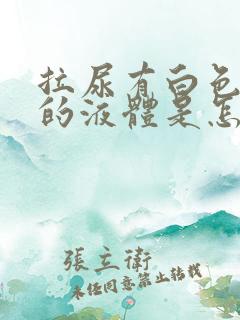 拉尿有白色
的液體是怎
張立衛
未经同意禁止转载